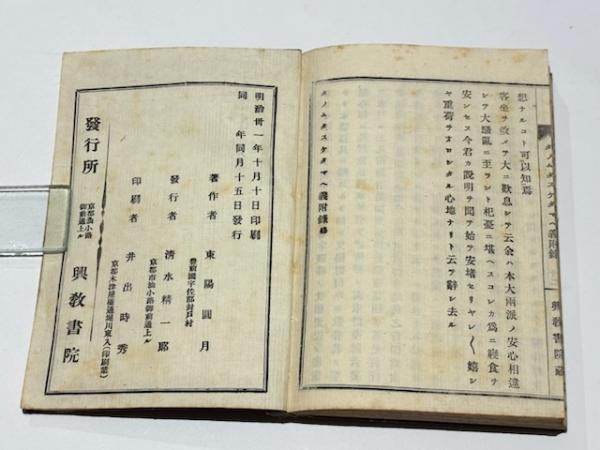 想ナルコト可以知焉
客坐ヲ改メテ大ニ歎息シテ云余ハ本大兩派ノ安心相違
シテ大騷亂ニ至ラント杞憂ニ堪ヘスコレカ爲ニ寢食ヲ
安ンセス今君カ說明ヲ聞テ始テ安堵セリヤレ〱嬉シ
ヤ重荷ヲオロシタル心地ナリト云テ辭シ去ル
タノムタスケタマヘ義附錄終
タノムタスケタマヘ義附錄
興教書院藏
明治卅一年十月十日印刷
同 年同月十五日發行
豊前國宇佐郡封戸村
著作者 東陽圓月
京都市油小路御前通上ル
發行者 清水精一郎
京都木津屋橋通堀川東入(印刷業)
印刷者 井出時秀
發行所
京都油小路
御前通上ル
興教書院